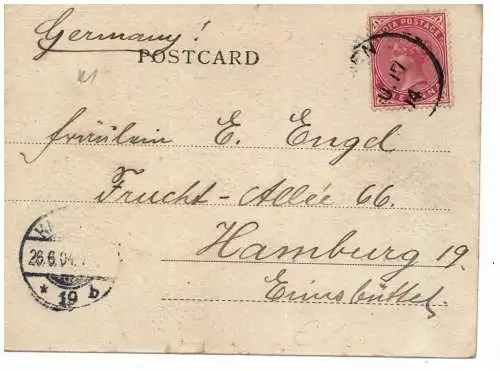 Germany!
POSTCARD
DIA POSTAGE
17
Fräulein E. Engel
Frucht-Allée 66.
Hamburg 19.
Eimsbüttel.
26.6.04.
* 19 b